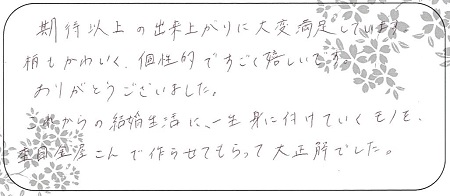 期待以上の出来上がりに大変満足しています。
柄もかわいく、個性的ですごく嬉しいです。
ありがとうございました。
これからの結婚生活に、一生身に付けていくモノを、
杢目金屋さんで作らせてもらって大正解でした。